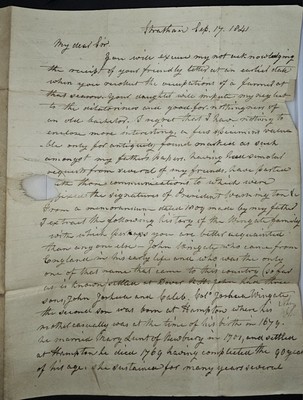 Stratham Sep. 17. 1841
My dear Sir.
You will excuse my not acknowledging
the receipt of your friendly letter at an earlier date
when you recollect the occupations of a farmer at
this season. Your daughter will impute any neglect
to the dilatoriness and good for nothingness of
an old bachelor. I regret that I have nothing to
enclose more interesting, a few specimens valua
ble only for antiquity found marked as such
amongst my fathers papers, having had similar
requests from several of my friends, have parted
with those communications to which were
the signatures of President Washington &c
From a memorandum made by my father
I extract the following history of the Wingate family
with which perhaps you are better acquainted
than any one else — John Wingate who came from
England in his early life and who was the only
one of that name that came to this country (so far
as is known settled at Dover N.H. John had three
sons, John Joshua and Caleb. Col. Joshua Wingate
the second son was born at Hampton where his
mother casually was at the time of his birth in 1679.
he married Mary Lunt of Newbury in 1701, and settled
at Hampton he died 1769 having completed the 90 year
of his age. she sustained for many years several